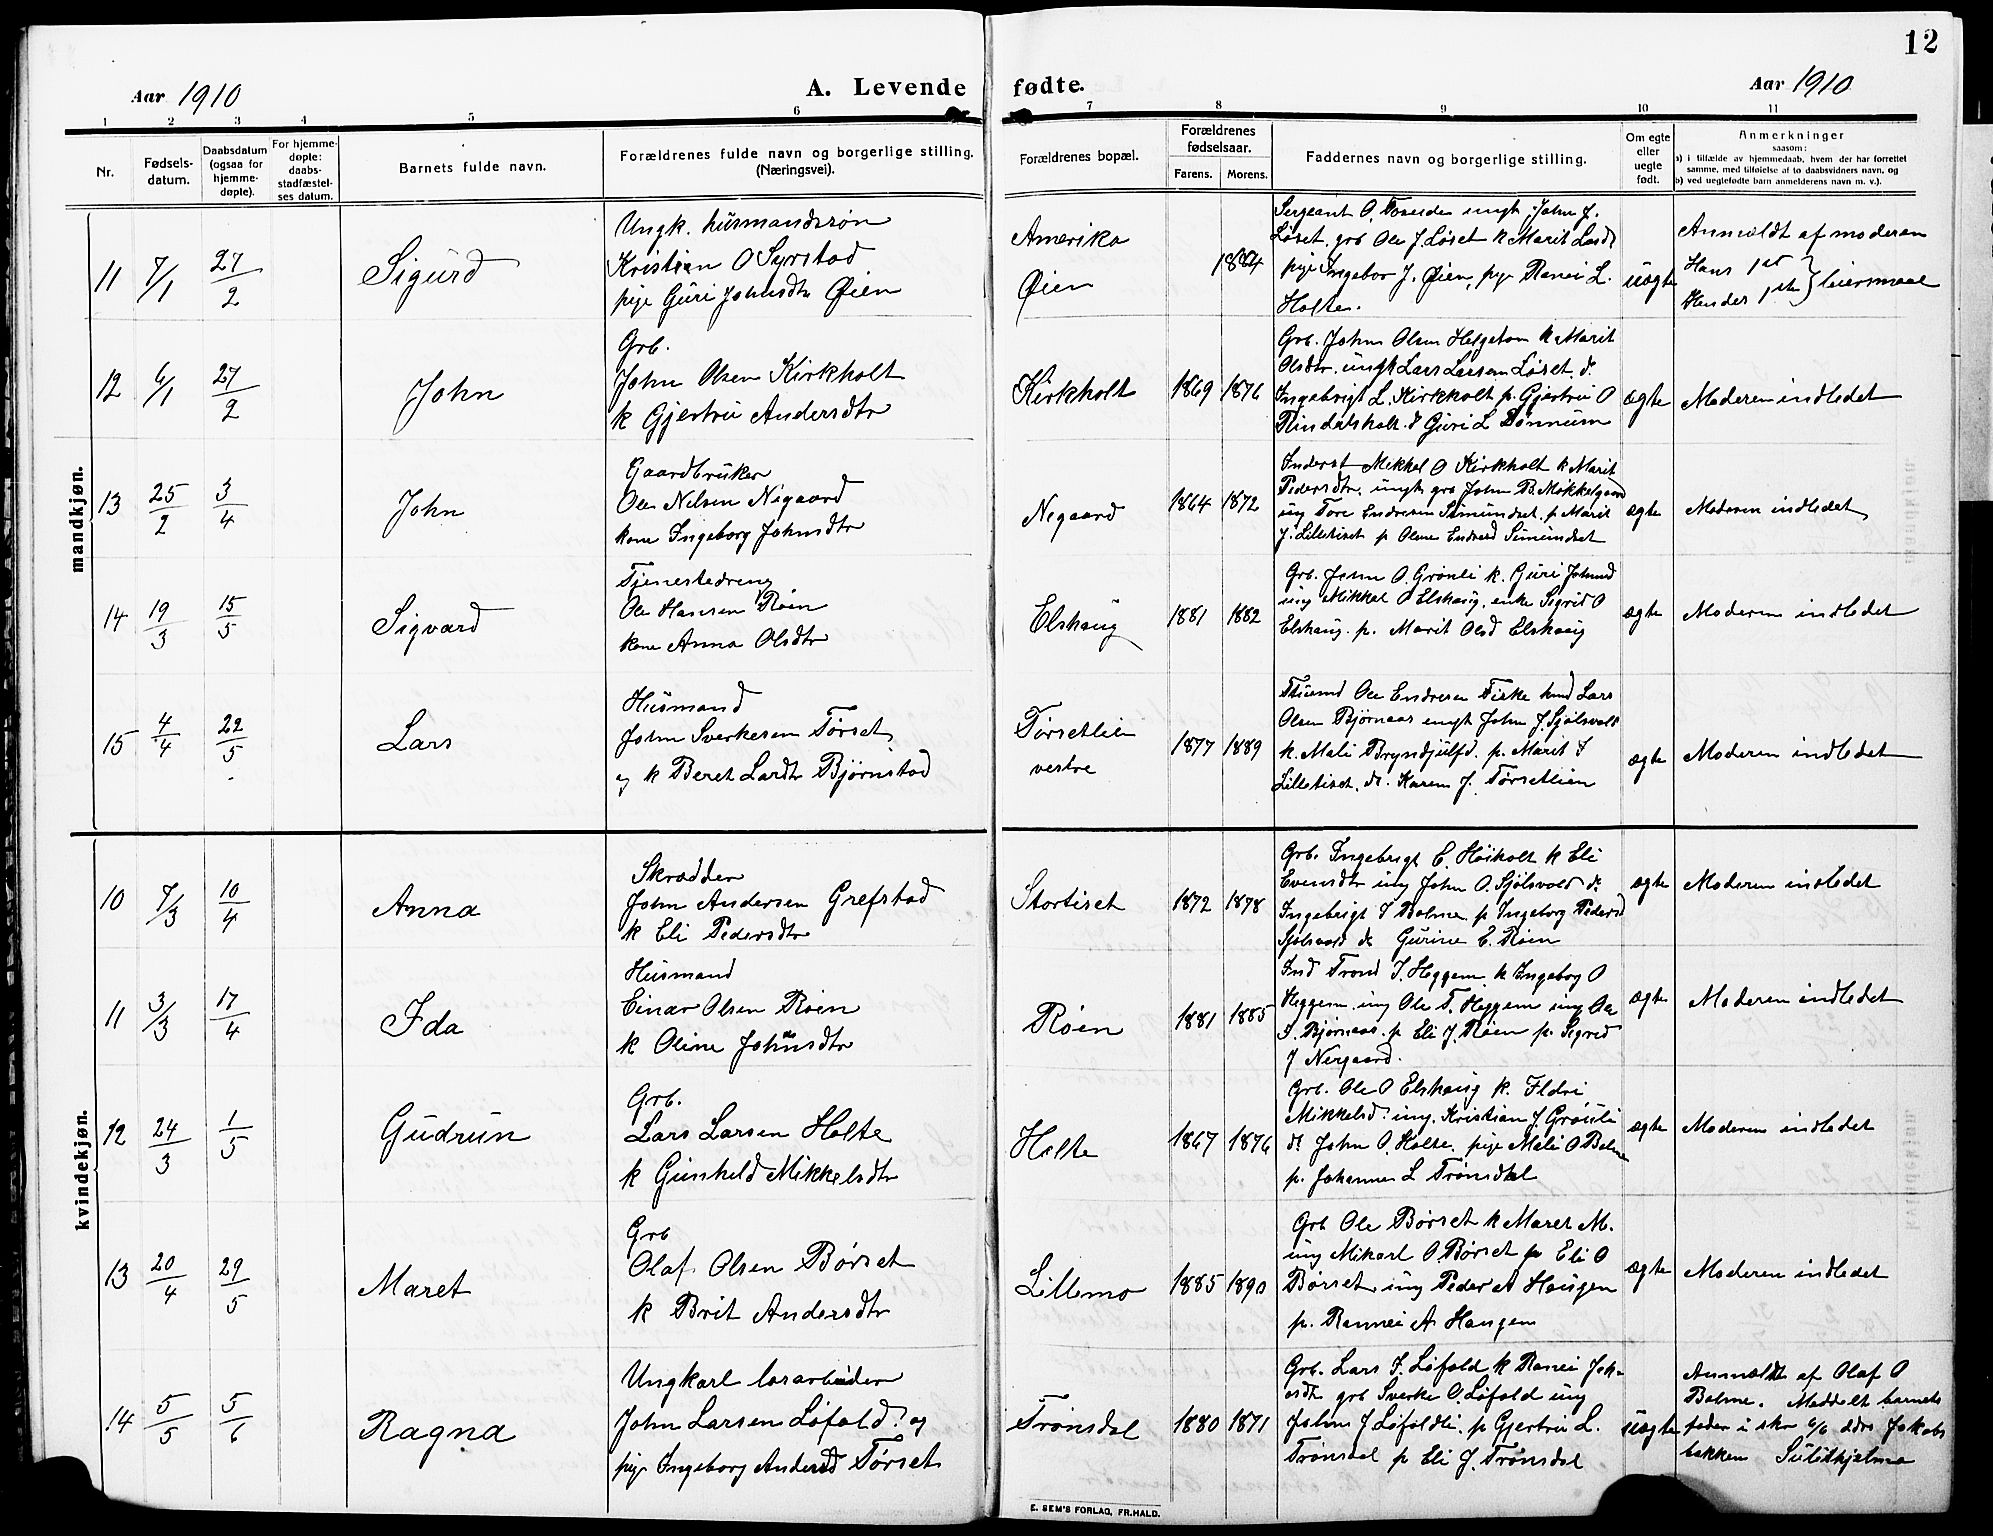 12
Aar 1910
A. Levende fødte.
Aar 1910
1 2 3 4 5 6 7 8 9 10 11
Nr.
Fødsels-
datum.
Daabsdatum
(ogsaa for
hjemme-
døpte).
For hjemme-
døpte:
daabs-
stadfæstel-
ses datum.
Barnets fulde navn.
Forældrenes fulde navn og borgerlige stilling.
(Næringsvei).
Forældrenes bopæl.
Forældrenes
fødselsaar.
Farens. Morens.
Faddernes navn og borgerlige stilling.
Om egte
eller
uegte
født.
Anmerkninger
saasom:
a) i tilfælde av hjemmedaab, hvem der har forrettet
samme, med tilføielse af to daabsvidners navn, og
b) ved uegtefødte barn anmelderens navn m. v.).
mandkjøn.
11 7/1 27/2 Sigurd
Ungk. husmandssøn
Kristian O Syrstad
pige Guri Johnsdtr Øien
Amerika
Øien
1884
Sergeant O. ungk. John J.
Løset. grb Ole J. Løset k Marit Larsd
pige Ingebor J. Øien, pige Ranei L.
Holte.
uægte
Anmeldt af moderen
Hans 1ste
Hendes 1ste } leiermaal
12 6/1 27/2 John
Grb.
John Olsen Kirkholt
k Gjertru Andersdtr
Kirkholt
1869 1876
Grb. John Olsen Helgetom k Marit
Olsdtr. ungk Lars Larsen Løset. d.
Ingebrigt L. Kirkholt p. Gjertru O
Rindalsholt. d Guri L Dønnum
ægte
Moderen indledet
13 25/2 3/4 John
Gaardbruker
Ole Nilsen Negaard
kone Ingeborg Johnsdtr
Negaard
1864 1872
Inderst Mikkel O Kirkholt k Marit
Pedersdtr. ungk grb John B. Mokkelgaard
ung Tore Endresen Simundset. p. Marit
J. Lilletiset p Olene Endresd Simundset
ægte
Moderen indledet
14 19/3 15/5 Sigvard
Tjenestedreng
Ole Hansen Røen
kone Anna Olsdtr
Elshaug
1881 1882
Grb. John O. Grønli k. Guri Johnsd
ung Mikkel O Elshaug. enke Sigrid O
Elshaug. p. Marit Olsd Elshaug
ægte
Moderen indledet
15 4/4 22/5 Lars
Husmand
John Sverkesen Tørset
og k Beret Larsdtr Bjørnstad
Tørsetlien
vestre
1877 1889
Ole Endresen Fiske husmd Lars
Olsen Bjørnaas ungk John J. Sjølsvold
k. Mali Bryndjulfsd. p. Marit I
Lilletiset. d. Karen J. Tørsetlien
ægte
Moderen indledet
kvindekjøn.
10 7/3 10/4 Anna
Skrædder
John Andersen Grefstad
k Eli Pedersdtr
Stortiset
1872 1878
Grb. Ingebrigt E. Høiholt k Eli
Evensdtr ung John O. Sjølsvold d.
Ingebrigt I Bolme. p Ingeborg Pedersd
Sjølsvold d. Gurine E. Røen
ægte
Moderen indledet
11 3/3 17/4 Ida
Husmand
Einar Olsen Røen
k Oline Johnsdtr
Røen
1881 1885
Ind Trond I. Heggem k Ingeborg O
Heggem. ung Ole T. Heggem ung Ole
I. Bjørnaas. p Eli J. Røen p. Sigrid
J Nergaard.
ægte
Moderen indledet
12 24/3 1/5 Gudrun
Grb.
Lars Larsen Holte
k Gunhild Mikkelsdtr
Holte
1867 1876
Grb. Ole O Elshaug k. Ildri
Mikkelsd. ung. Kristian J. Grønli
d. John O. Holte. pige Mali O Bolme
p. Johanne L Trønsdal
ægte
Moderen indledet
13 20/4 29/5 Maret
Grb
Olaf Olsen Børset
k Brit Andersdtr
Lillemo
1885 1890
Grb Ole Børset k Maret M.
ung Mikael O. Børset p Eli O
Børset. ung Peder A Haugen
p. Rannei A Haugen
ægte
Moderen indledet
14 5/5 5/6 Ragna
Ungkarl løsarbeider
John Larsen Løfald. og
pige Ingeborg Andersd Tørset
Trønsdal
1880 1871
Grb. Lars I. Løfald k Ranei Joh-
sdtr grb Sverke O. Løfald ung
John J Løfaldli. p Gjertru L.
Trønsdal p Eli J. Trønsdal
uægte
Anmeldt af Olaf O
Bolme. Meddelt barnets
fader i skr 6/6 adrs Jakobs
bakken Sulithjelma
E. SEM'S FORLAG, FR.HALD.